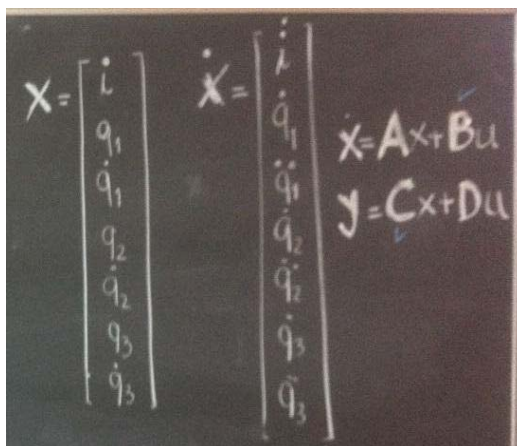 X = [i q₁ q̇₁ q₂ q̇₂ q₃ q̇₃]
Ẋ = [i̇ q̇₁ q̈₁ q̇₂ q̈₂ q̇₃ q̈₃]
ẋ = Ax + Bu
y = Cx + Du